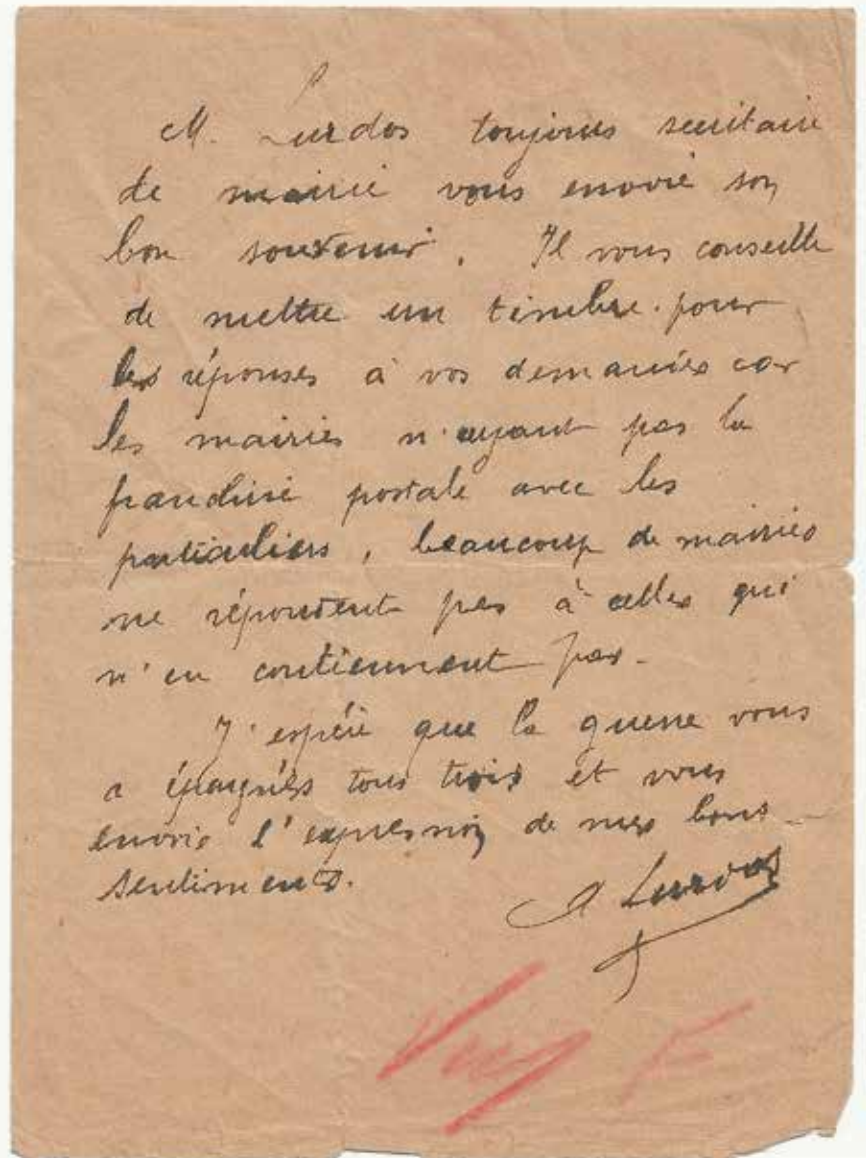 M. Lurdos toujours secrétaire
de mairie vous envoie son
bon souvenir. Il vous conseille
de mettre un timbre pour
les réponses à vos demandes car
les mairies n'ayant pas la
franchise postale avec les
particuliers, beaucoup de mairies
ne répondent pas à celles qui
n'en contiennent pas.
J'espère que la guerre vous
a épargnés tous trois et vous
envoie l'expression de mes bons
sentiments.
A Lurdos